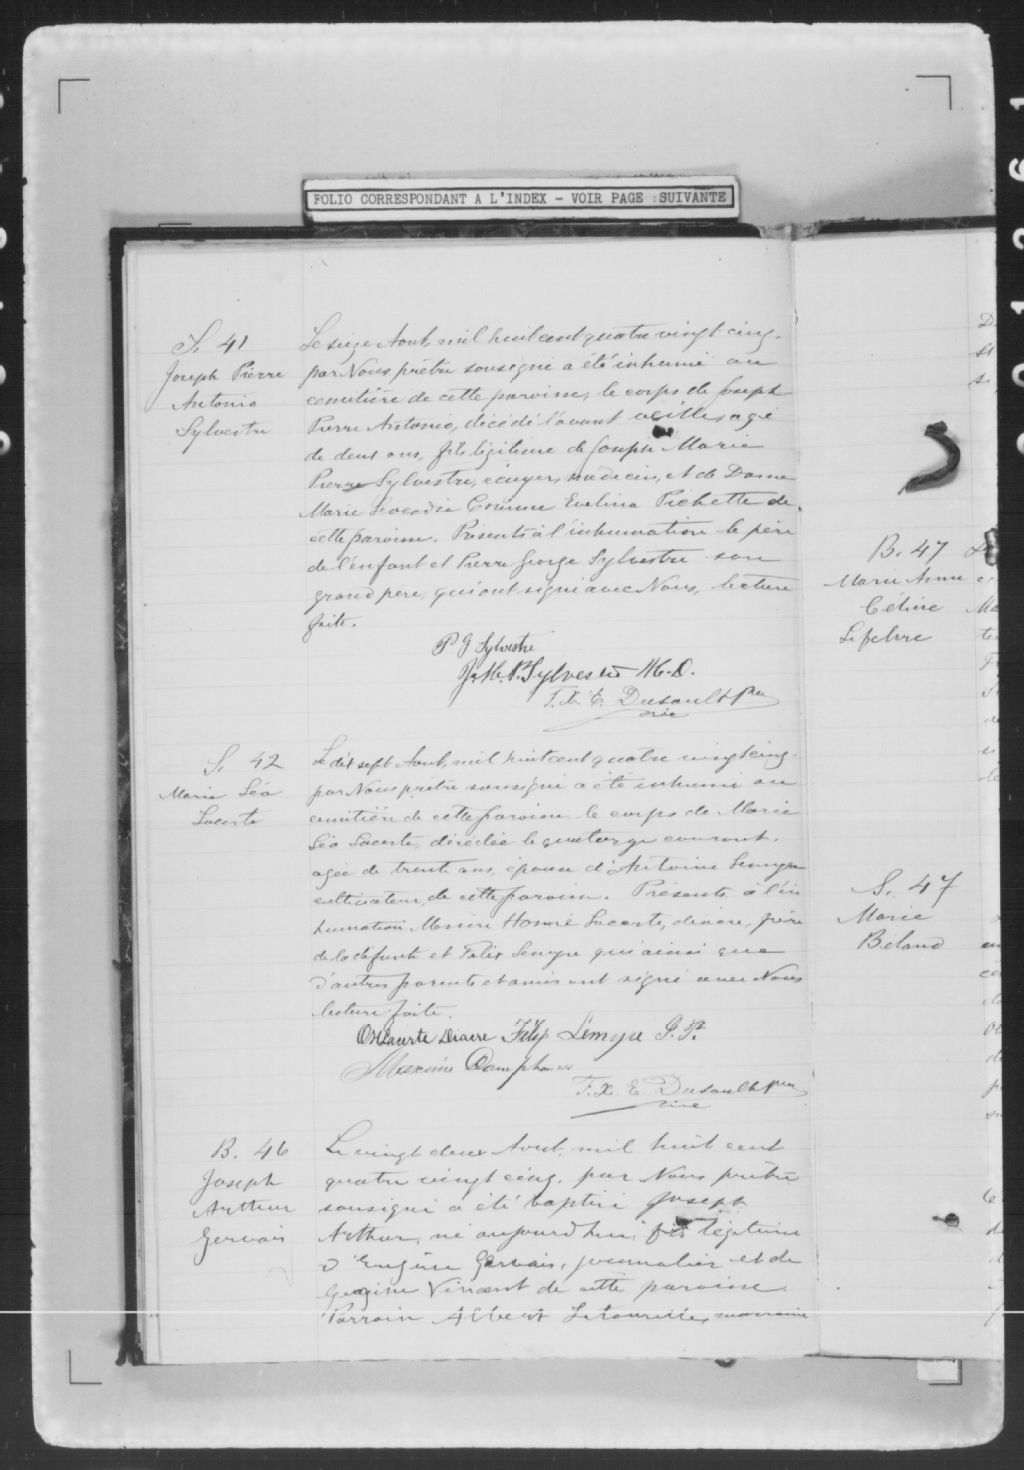 FOLIO CORRESPONDANT A L'INDEX - VOIR PAGE SUIVANTE
S. 41
Joseph Pierre
Antonio
Sylvestre
Le seize Aout, mil huit cent quatre vingt cinq.
par Nous prêtre soussigné a été inhumé au
cimetière de cette paroisse, le corps de Joseph
Pierre Antonio, décédé l'avant veille, agé
de deux ans, fils légitime de Joseph Marie
Pierre Sylvestre, écuyer, médecin, et de Dame
Marie Léocadie Corinne Evelina Pichette de
cette paroisse. Présents à l'inhumation le père
de l'enfant et Pierre George Sylvestre son
grand père, qui ont signé avec Nous, lecture
faite.
P G Sylvestre
J. M. P. Sylvestre M.D.
F. X. E. Dusault ptre
vic
S. 42
Marie Léa
Lacerte
Le dix sept Aout, mil huit cent quatre vingt cinq
par Nous prêtre soussigné a été inhumé au
cimetière de cette paroisse le corps de Marie
Léa Lacerte, décédée le quatorze courant,
agée de trente ans, épouse d'Antoine Lemyre
cultivateur, de cette paroisse. Présents à l'in
humation Messire Honoré Lacerte, diacre, frère
de la défunte et Félix Lemyre qui ainsi que
d'autres parents et amis ont signé avec Nous
lecture faite.
Lacerte Diacre Félix Lemyre
Maxime
F. X. E. Dusault ptre
vic
B. 46
Joseph
Arthur
Gervais
Le vingt deux Aout, mil huit cent
quatre vingt cinq, par Nous prêtre
soussigné a été baptisé Joseph
Arthur, né aujourd'hui, fils légitime
d'Eugène Gervais, journalier et de
Vincent de cette paroisse.
Parrain Albert Letourelle, marraine
B. 47
Marie Anne
Céline
Lefebvre
S. 47
Marie
Béland